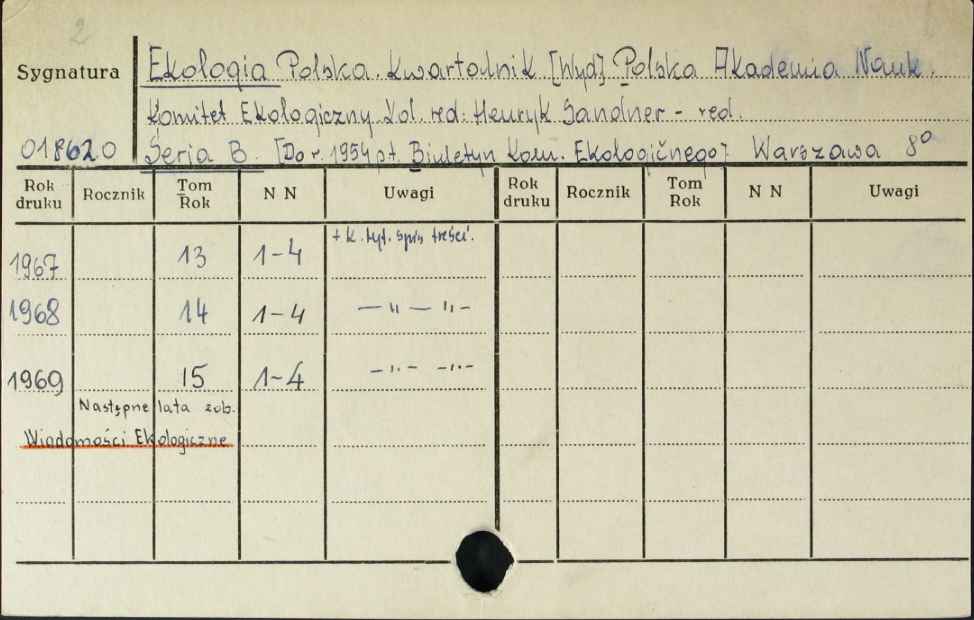 2
Sygnatura
Ekologia Polska. Kwartalnik [Wyd] Polska Akademia Nauk.
Komitet Ekologiczny Kol. red: Henryk Sandner - red.
018620 Serja B. [Do r. 1954 pt. Biuletyn Kom. Ekologicznego] Warszawa 8°
Rok druku Rocznik Tom Rok N N Uwagi Rok druku Rocznik Tom Rok N N Uwagi
1967 13 1-4 + k. tyt. spis treści.
1968 14 1-4 — " — " -
1969 15 1-4 - " - - " -
Następne lata zob.
Wiadomości Ekologiczne